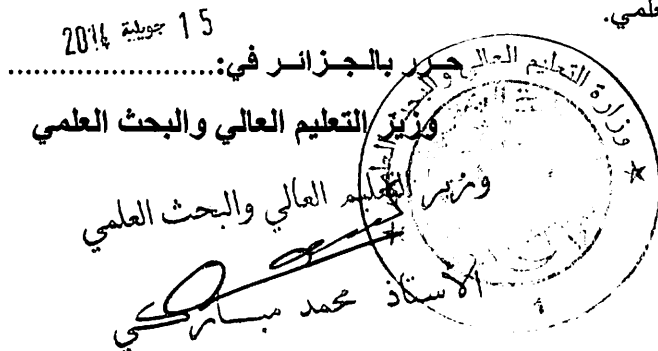 علمي.
15 جويلية 2014
حرر بالجزائر في:......................
وزير التعليم العالي والبحث العلمي
وزير التعليم العالي والبحث العلمي
الأستاذ محمد مباركي
وزارة التعليم العالي والبحث العلمي